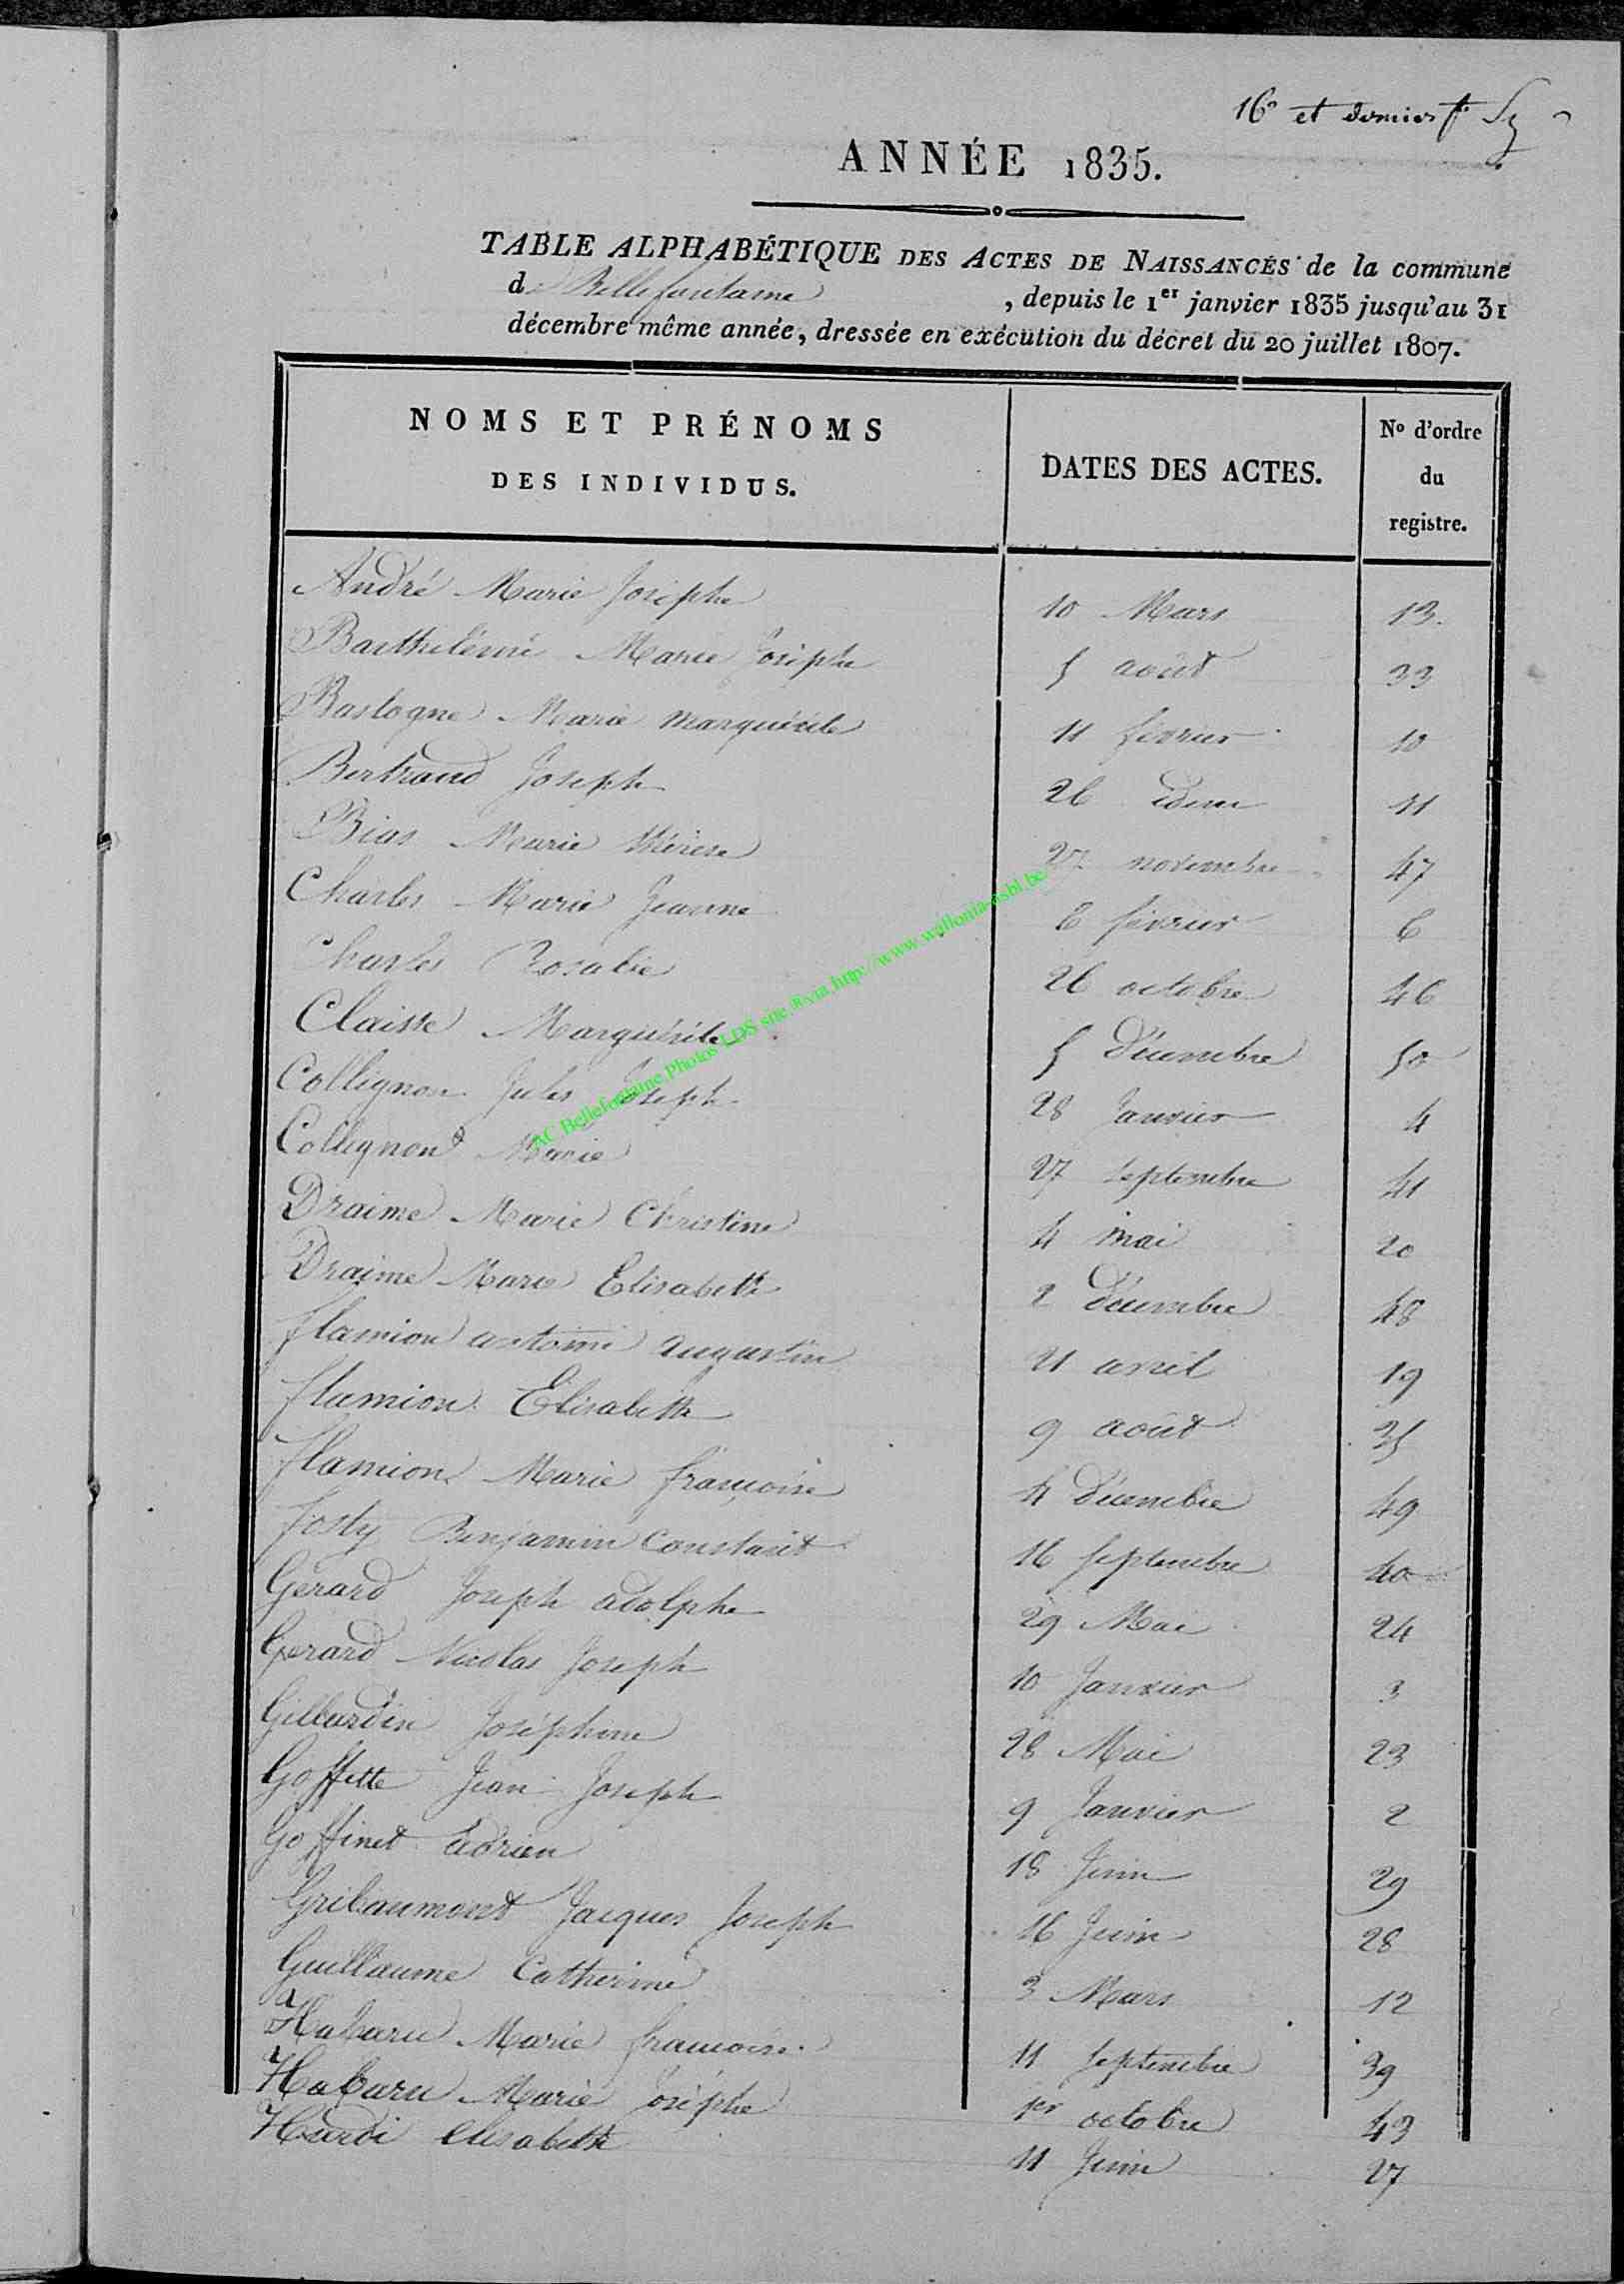 16e et dernier f.
ANNÉE 1835.
TABLE ALPHABÉTIQUE DES ACTES DE NAISSANCES de la commune
d Bellefontaine , depuis le 1er janvier 1835 jusqu'au 31
décembre même année, dressée en exécution du décret du 20 juillet 1807.
NOMS ET PRÉNOMS DES INDIVIDUS. DATES DES ACTES. No d'ordre du registre.
André Marie Josèphe 10 Mars 13.
Barthélémi Marie Josèphe 5 août 33
Bastogne Marie Marguérite 11 février 10
Bertrand Joseph 26 idem 11
Bias Marie thérèse 27 novembre 47
Charles Marie Jeanne 6 février 6
Charles Rosalie 26 octobre 46
Claisse Marguérite 5 Décembre 50
Collignon Jules Joseph 28 Janvier 4
Collignon Marie 27 septembre 41
Draime Marie Christine 4 mai 20
Draime Marie Elisabeth 2 Décembre 48
flamion antoine augustin 21 avril 19
flamion Elisabeth 9 août 35
flamion Marie françoise 4 Décembre 49
fosty Benjamin Constant 16 septembre 40
Gérard Joseph adolphe 29 Mai 24
Gerard Nicolas Joseph 10 Janvier 3
Gillardin Joséphine 28 Mai 23
Goffette Jean Joseph 9 Janvier 2
Goffinet adrien 18 Juin 29
Gribaumont Jacques Joseph 16 Juin 28
Guillaume Catherine 3 Mars 12
Habaru Marie françoise 11 septembre 39
Habaru Marie Josèphe 1er octobre 43
Hardi elisabeth 11 Juin 27
AC Bellefontaine Photos LDS site R via http://www.wallonia-asbl.be/